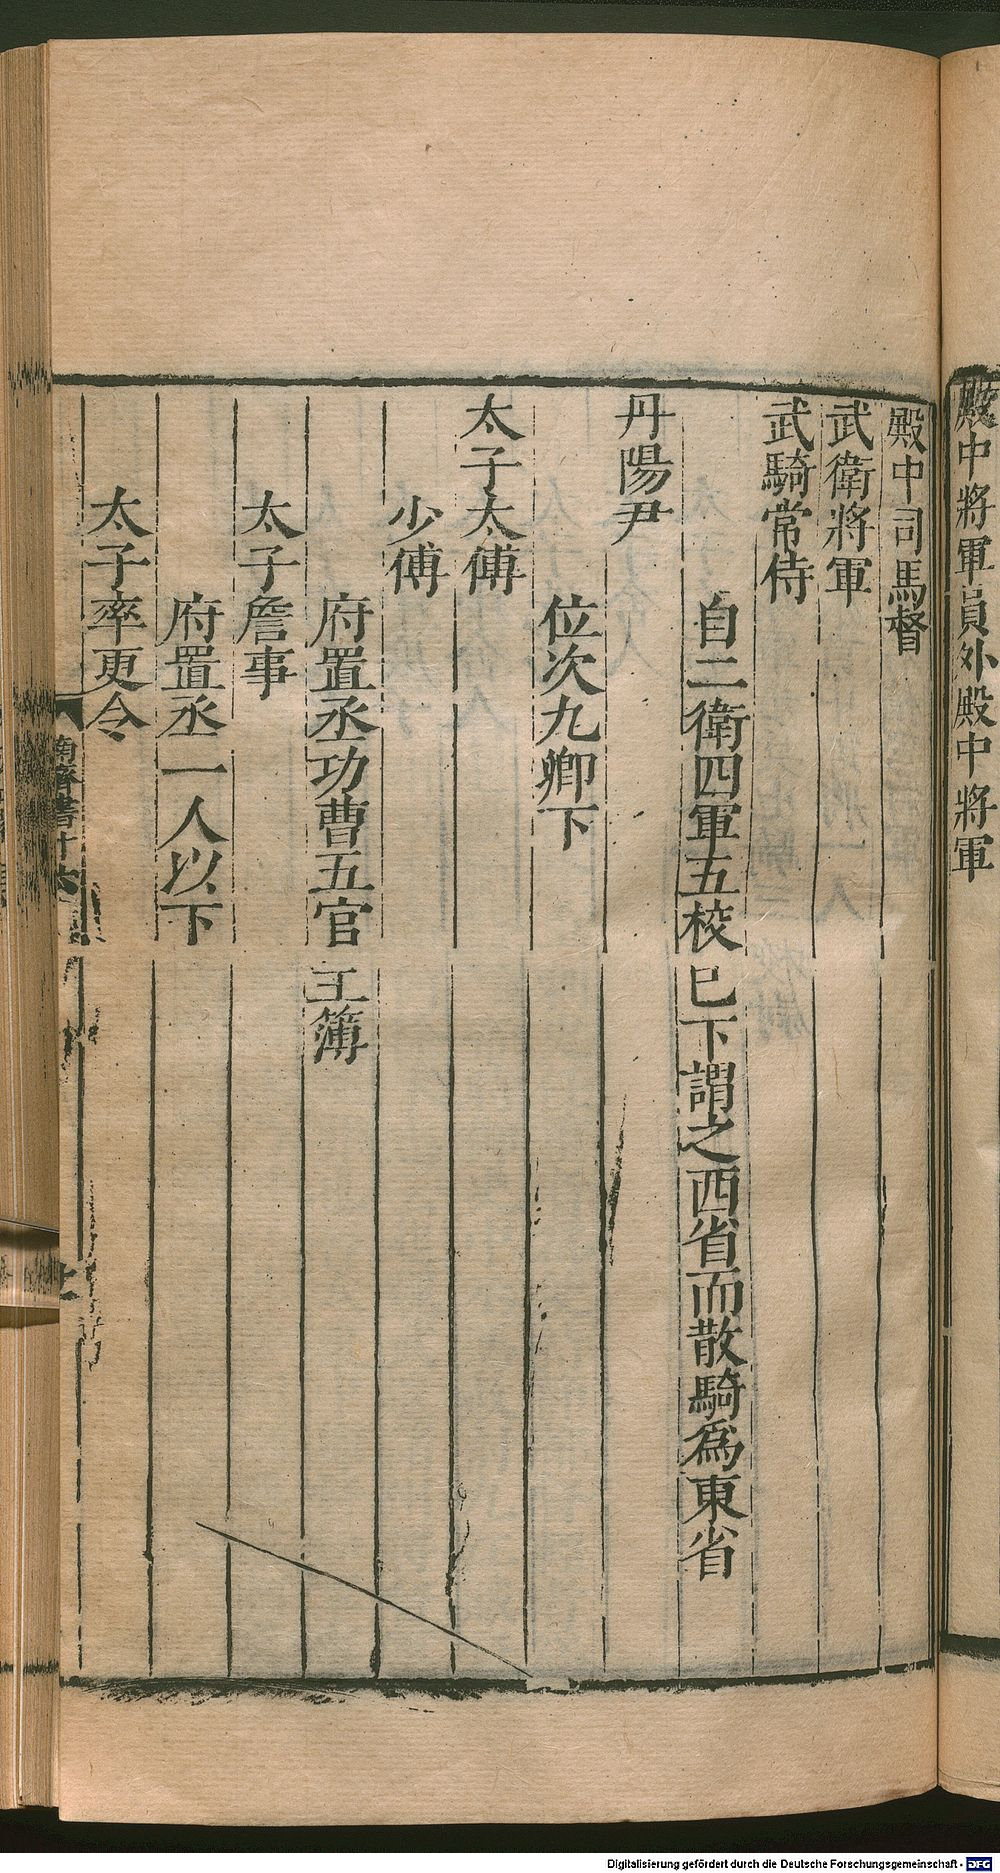 殿中將軍員外殿中將軍
殿中司馬督
武衛將軍
武騎常侍
自二衛四軍五校巳下謂之西省而散騎爲東省
丹陽尹
位次九卿下
太子太傅
少傅
府置丞功曹五官主簿
太子詹事
府置丞一人以下
太子率更令
南齊書十六
Digitalisierung gefördert durch die Deutsche Forschungsgemeinschaft - DFG